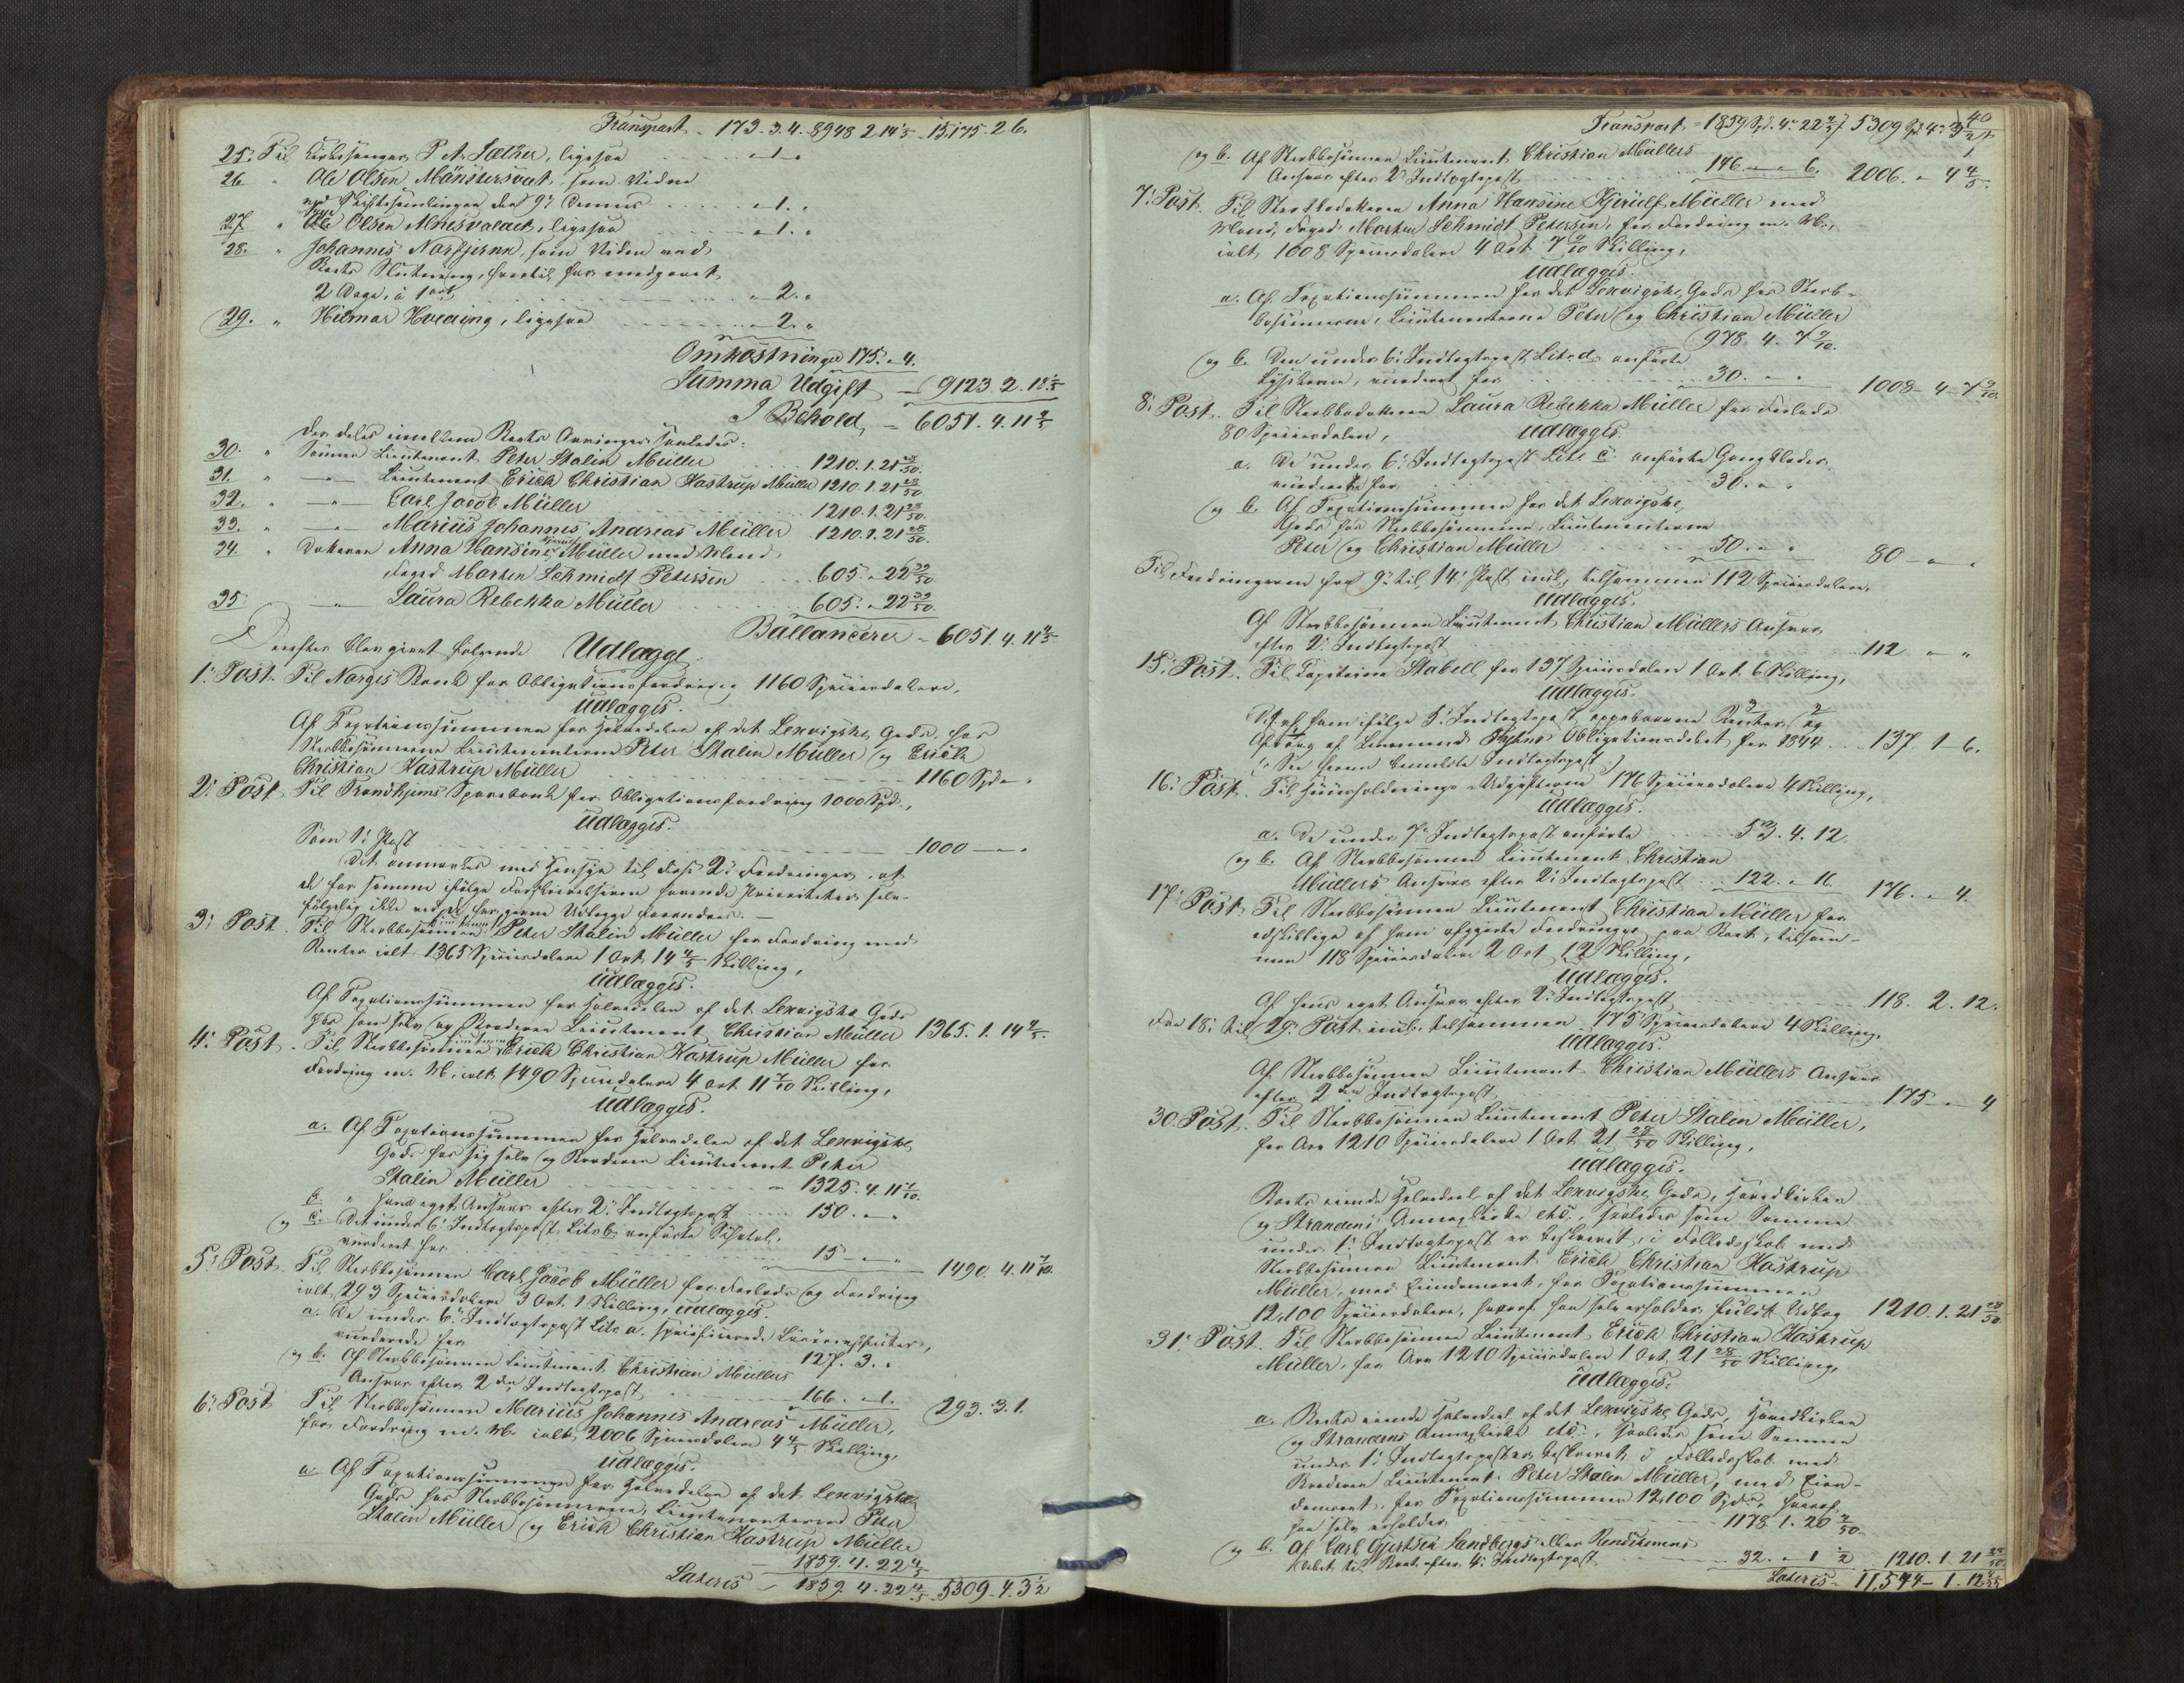 Transport - 173. 3. 4. - 8948. 2. 14⅕ - 15,175. 2. 6.
25. Til Kirkesanger P. A. Sæther, ligesaa - 1. "
26. " Ole Olsen Mänstersveet, som Vidne
ved Skiftesamlingen den 9de Dennes - " 1. "
27. " Ole Olsen Alnesvalact, ligesaa - " 1. "
28. " Johannes Norfjernn, som Vidne ved
Boets Slutning, hvortil har medgaaet
2 Dage, à 1 ort - " 2. "
29. " Hilmar Hveding, ligesaa - " 2. "
Omkostninger 175. " 4.
Summa Udgift - 9123. 2. 18⅕
I Behold, - 6051. 4. 11⅘
der deles imellem Boets Arvinger saaledes:
30. " Sønnen Lieutenant Peter Stalin Müller 1210. 1. 21 28/50.
31. " — Lieutenant Erich Christian Hastrup Müller 1210. 1. 21 28/50.
32. " — Carl Jacob Müller 1210. 1. 21 28/50.
33. " — Marius Johannes Andreas Müller 1210. 1. 21 28/50.
34. " Datteren Anna Hansine Hjerulf Müller med Mand,
Foged Morten Schmidt Petersen 605. " 22 39/50.
35 — Laura Rebekka Müller 605. " 22 39/50.
Ballancerer - 6051. 4. 11⅘
Derefter blev gjort følgende Udlægg:
1ste Post. Til Norges Bank for Obligationsfordring 1160 Speciedalere,
Udlægges.
Af Taxationssummen for Halvdelen af det Lexvigske Gods, hos
Sterbbosønnerne Lieutenanterne Peter Stalin Müller og Erich
Christian Hastrup Müller 1160 Spd " "
2. Post Til Trondhjems Sparebank for Obligationsfordring 1000 Spd.,
Udlægges.
Som 1ste Post 1000 — " "
Det anmærkes med Hensyn til disse 2de Fordringer, at
de for samme ifølge Forskrivelserne havende Prioriteter selv-
følgelig ikke ved de her givne Udlægge forandres. —
3die Post. Til Sterbbosønnen Lieutenant Peter Stalin Müller for Fordring med
Renter ialt 1365 Speciedalere 1 Ort 14⅘ Skilling,
Udlægges.
Af Taxationssummen for Halvdelen af det Lexvigske Gods
hos ham selv og Broderen Lieutenant Christian Müller 1365. 1. 14⅘.
4. Post. Til Sterbbosønnen Lieutenant Erich Christian Hastrup Müller for
Fordring m. M., ialt 1490 Speciedalere 4 Ort 11 7/10 Skilling,
Udlægges.
a. Af Taxationssummen for Halvdelen af det Lexvigske
Gods hos sig selv og Broderen Lieutenant Peter
Stalin Müller - 1325. 4. 11 7/10.
b. " hans eget Ansvar efter 2. Indtægtspost 150. — "
og c. Det under 6. Indtægtspost Litr. b anførte
vurderet for 15 — " " 1490. 4. 11 7/10.
5. Post. Til Sterbbosønnen Carl Jacob Müller for Forlods og Fordring
ialt 293 Speciedalere 3 Ort 1 Skilling, Udlægges.
a. De under 6. Indtægtspost Litr. a. specificerede
vurderede for 127. 3. "
og b. Af Sterbbosønnen Lieutenant Christian Müllers
Ansvar efter 2den Indtægtspost 166. " 1. 293. 3. 1.
6. Post Til Sterbbosønnen Marius Johannes Andreas Müller,
for Fordring m. M. ialt 2006 Speciedalere 4⅘ Skilling,
Udlægges.
a. Af Taxationssummen for Halvdelen af det Lexvigske
Gods hos Sterbbosønnerne, Lieutenanterne Peter
Stalin Müller og Erich Christian Hastrup Müller
- 1859. 4. 22⅘
Lateris - 1859. 4. 22⅘ 5309. 4. 3½
40
Transport - 1859 Spd. 4. 22⅘ 5309 Spd. 4. 3½
og b. Af Sterbbosønnen Lieutenant Christian Müllers
Ansvar efter 2. Indtægtspost 146. — " 6. 2006. " 4⅘.
7. Post. Til Sterbbodatteren Anna Hansine Hjerulf Müller med
Mand, Foged Morten Schmidt Petersen, for Fordring m. M.,
ialt 1008 Speciedalere 4 Ort 7 9/10 Skilling,
Udlægges.
a. Af Taxationssummen for det Lexvigske Gods hos Sterb-
bosønnerne, Lieutenanterne Peter og Christian Müller
978. 4. 7 9/10.
og b. Den under 6. Indtægtspost Litr. d. anførte
vurderet for 30. " " 1008 - 4 - 7 9/10.
8. Post. Til Sterbbodatteren Laura Rebekka Müller for Forlods
80 Speciedalere, Udlægges.
a. De under 6. Indtægtspost Litr. c. anførte Gangklæder,
vurderede for 30. " "
og b. Af Taxationssummen for det Lexvigske
Gods hos Sterbbosønnerne, Lieutenanterne
Peter og Christian Müller 50. " " 80 — " "
Til Fordringerne fra 9. til 14. Post incl., tilsammen 112 Speciedalere,
Udlægges.
Af Sterbbosønnen Lieutenant Christian Müllers Ansvar
efter 2. Indtægtspost 112 " "
15. Post. Til Capitaine Stabell for 137 Speciedalere 1 Ort 6 Skilling,
Udlægges.
af ham ifølge 5. Indtægtspost oppebaarne Renter og
Afdrag af Obligationsgjeld for 1844 137. 1 - 6.
Se Indtægtspost
16. Post. Til Huusholdnings-Udgifterne 176 Speciedalere 4 Skilling,
Udlægges.
a. De under 7. Indtægtspost anførte 53. 4. 12.
og b. Af Sterbbosønnen Lieutenant Christian
Müllers Ansvar efter 2. Indtægtspost 122. " 16. 176. " 4.
17. Post. Til Sterbbosønnen Lieutenant Christian Müller for
adskillige af ham afgjorte Fordringer paa Boet, tilsam-
men 118 Speciedalere 2 Ort 12 Skilling,
Udlægges.
Af hans eget Ansvar efter 2. Indtægtspost 118. 2. 12.
Fra 18. til 29. Post incl. tilsammen 175 Speciedalere 4 Skilling,
Udlægges.
Af Sterbbosønnen Lieutenant Christian Müllers Ansvar
efter 2den Indtægtspost 175 " 4
30. Post. Til Sterbbosønnen Lieutenant Peter Stalin Müller,
for Arv 1210 Speciedalere 1 Ort 21 28/50 Skilling,
Udlægges.
Boets eiende Halvdeel af det Lexvigske Gods, Hovedkirken
og Strandens Annexkirke etc., saaledes som Samme
under 1. Indtægtspost er beskrevet, i Fælledsskab med
Sterbbosønnen Lieutenant Erich Christian Hastrup
Müller, med Eiendomsret, for Taxationssummen
12,100 Speciedalere, hvoraf han selv erholder sit Udlæg 1210. 1. 21 28/50.
31. Post. Til Sterbbosønnen Lieutenant Erich Christian Hastrup
Müller, for Arv 1210 Speciedalere 1 Ort 21 28/50 Skilling,
Udlægges.
a. Boets eiende Halvdeel af det Lexvigske Gods, Hovedkirken
og Strandens Annexkirke etc., saaledes som Samme
under 1. Indtægtspost er beskrevet, i Fælledsskab med
Broderen Lieutenant Peter Stalin Müller, med Eien-
domsret, for Taxationssummen 12,100 Spd., hvoraf
han selv erholder 1178. 1. 20 /50.
og b. Af Carl Gjertsen Sandbergs eller
til Boet efter 4. Indtægtspost 32. " 1 ½ 1210. 1. 21 28/50.
Lateris - 11,544 - 1. 12